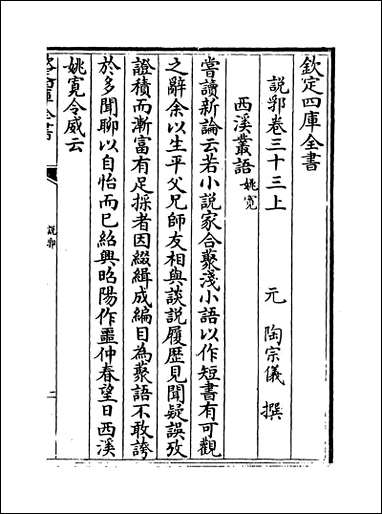 欽定四庫全書
説郛卷三十三上
元 陶宗儀 撰
西溪叢語 姚寛
嘗讀新論云若小説家合藂淺小語以作短書有可觀
之辭余以生平父兄師友相與談説履歴見聞疑誤攷
證積而漸富有足採者因綴緝成編目為藂語不敢誇
於多聞聊以自怡而已紹興昭陽作噩仲春望日西溪
姚寛令威云
説郛